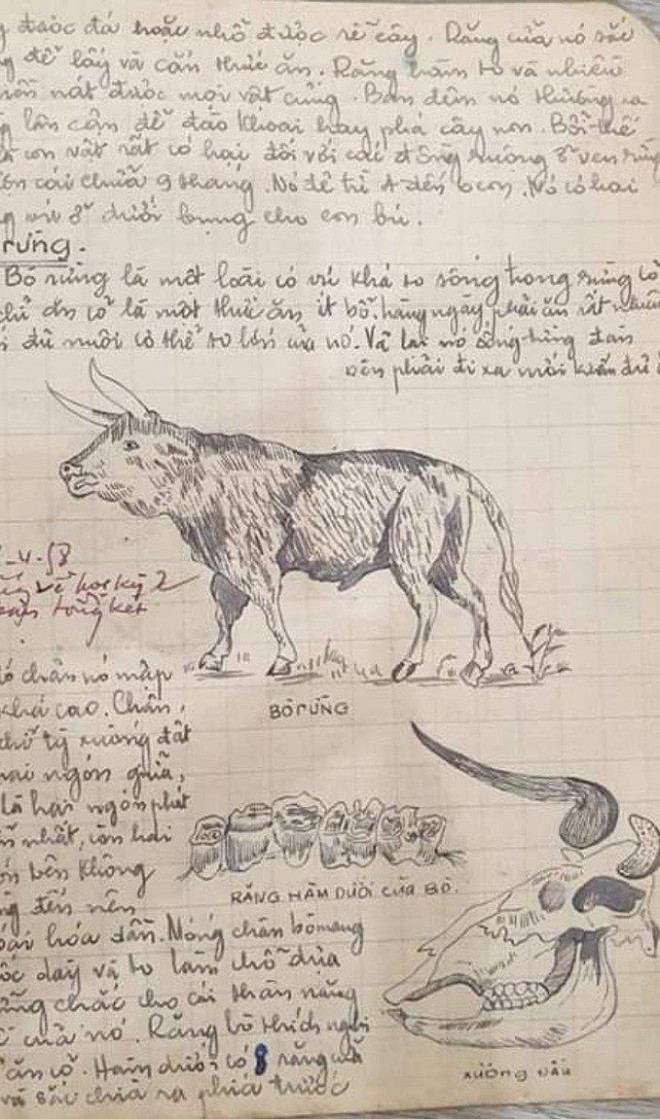 được đá hoặc nhổ được rễ cây. Răng cửa nó sắc
để lấy và cắn thức ăn. Răng hàm to và nhiều
nát được mọi vật cứng. Ban đêm nó thường ra
lân cận để đào khoai hay phá cây non. Bởi thế
con vật rất có hại đối với các đồng ruộng ở ven rừng
con cái chửa 9 tháng. Nó đẻ từ 4 đến 6 con. Nó có hai
vú ở dưới bụng cho con bú.
rừng.
Bò rừng là một loài có vú khá to sống trong rừng
chỉ ăn cỏ là một thức ăn ít bổ. hàng ngày phải ăn rất nhiều
đủ nuôi cơ thể to lớn của nó. Vả lại nó sống từng đàn
nên phải đi xa mới kiếm đủ
-4-58
vẽ học kỳ 2
tổng kết
chân nó mập
khá cao. Chân,
chỉ tỳ xuống đất
hai ngón giữa,
là hai ngón phát
nhất, còn hai
bên không
đến nên
hóa dần. Móng chân bò mang
dày và to làm chỗ dựa
chắc cho cái thân nặng
của nó. Răng bò thích nghi
ăn cỏ. Hàm dưới có 8 răng cửa
và sắc chìa ra phía trước
BÒ RỪNG
RĂNG HÀM DƯỚI CỦA BÒ.
XƯƠNG ĐẦU